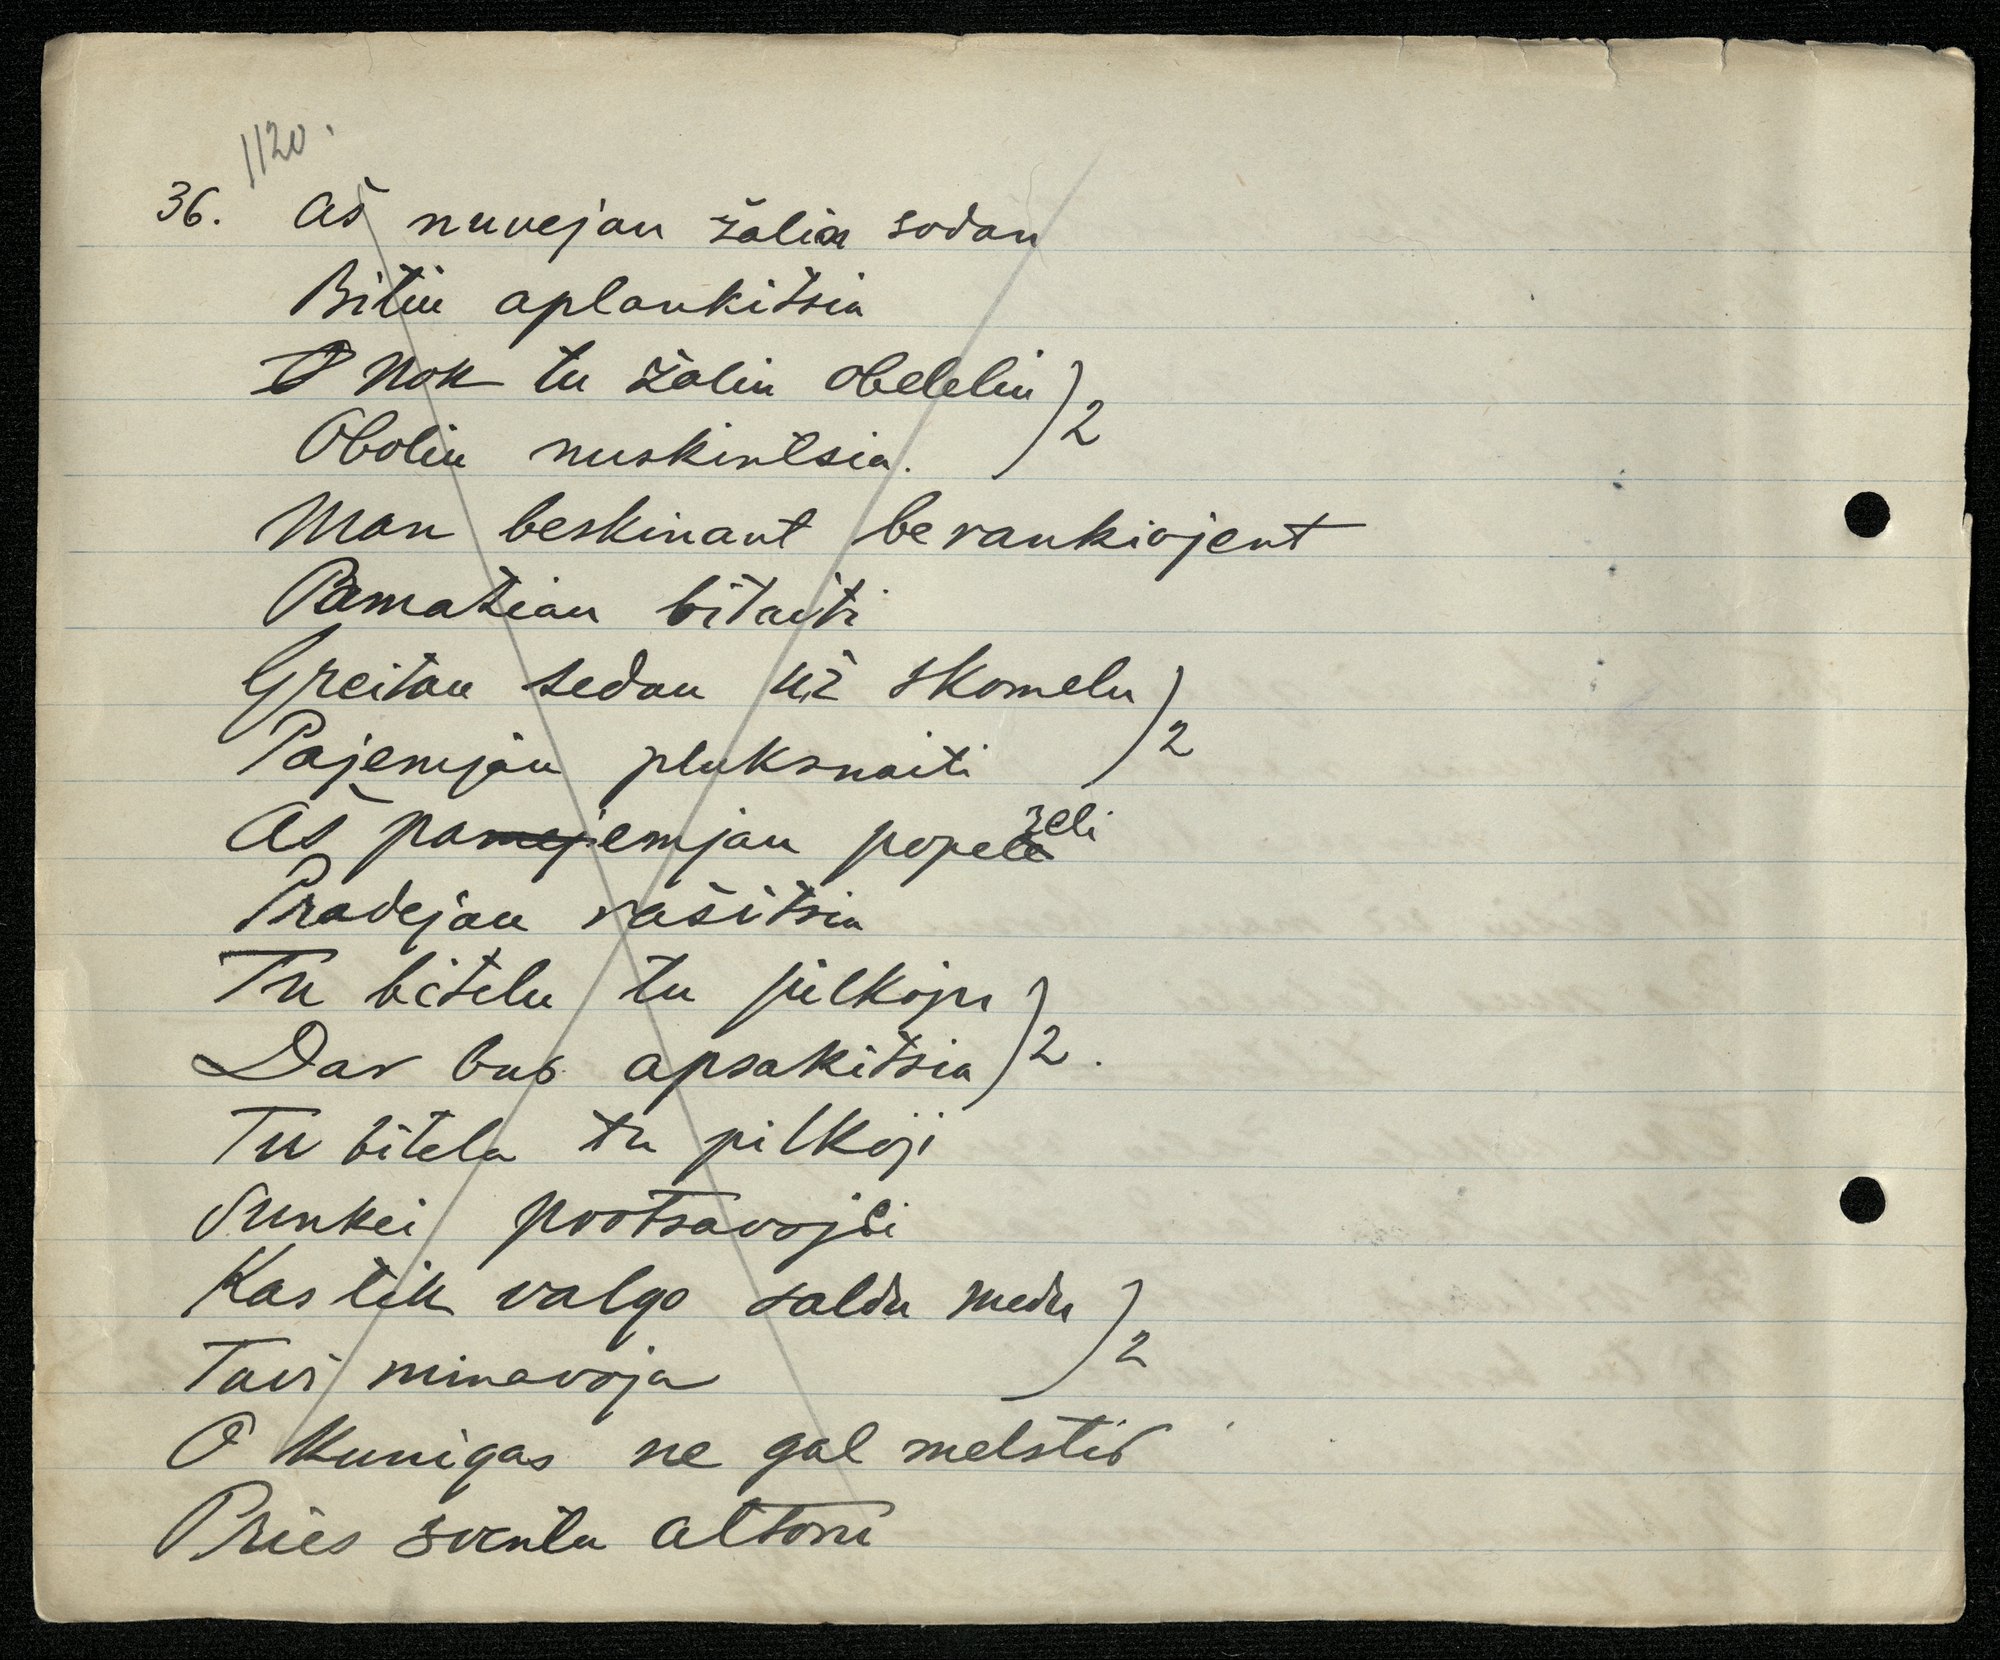 1120.
36. Aš nuvejau žalia sodau
Bitiu aplankitsia
O Nok tu žaliu obeleliu ) 2
Oboliu nuskintsia.
Man beskinant berankiojent
Pamatiau bitaiti
Greitau sedau už skomelu ) 2
Pajemjau pluksnaiti
Aš pamejemjau popezeli
Pradejau rašitsia
Tu bitelu tu pilkoju ) 2.
Dar bus apsakitsia
Tu bitela tu pilkoji
Sunkei protsavojei
Kas tik valgo saldu medu ) 2
Tavi minavoja
O Kunigas ne gal melstis
Pries sventu altori